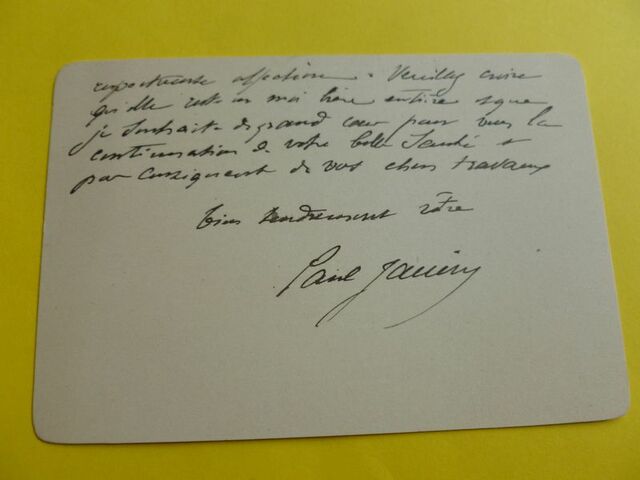 respectueuse affection. Veuillez croire
qu'elle reste en moi bien entière & que
je souhaite de grand cœur pour vous la
continuation de votre belle santé &
par conséquent de vos chers travaux
bien tendrement vôtre
Paul